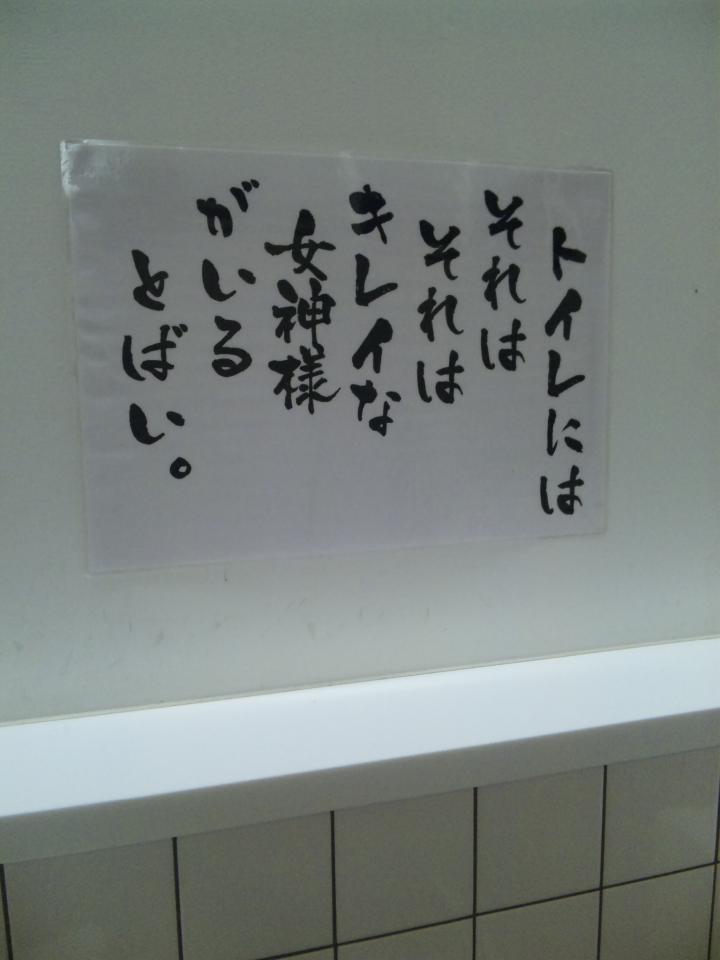 トイレには
それは
それは
キレイな
女神様
がいる
とばい。